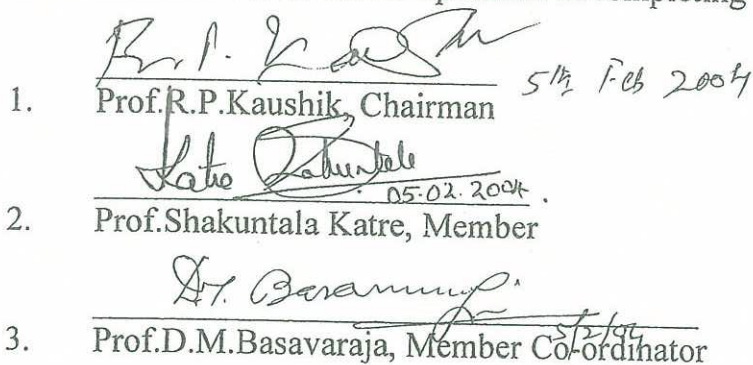 R. P. Kaushik
5th Feb 2004
1. Prof.R.P.Kaushik, Chairman
Katre Shakuntala
05.02.2004.
2. Prof.Shakuntala Katre, Member
5/2/04
3. Prof.D.M.Basavaraja, Member Co-ordinator